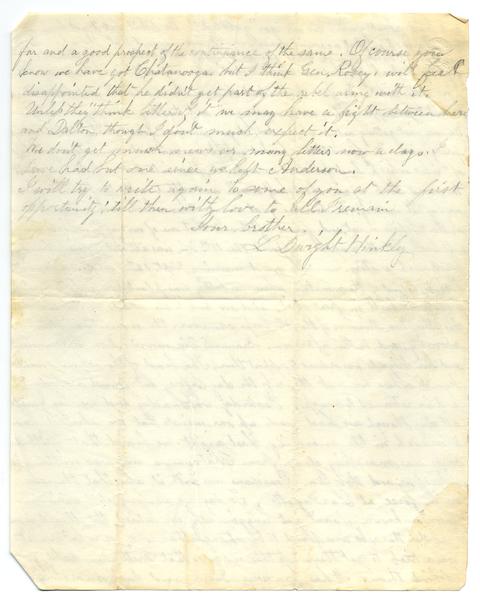 for and a good prospect of the continuance of the same. Of course you
know we have got Chatanooga but I think Gen. Rosey, will feel
disappointed that he didn't get part of the rebel army with it.
Unless they "think better of it" we may have a fight between here
and Dalton, though I don't much expect it.
We don't get much news or many letters now a days. I
have had but one since we left Anderson.
I will try to write again to some of you at the first
opportunity, till then with love to all I remain
Your brother.
L. Dwight Hinkly